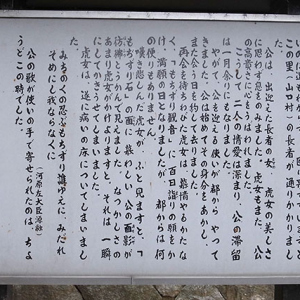 この里(山口村)の長者が通りかかりました。
公は、出迎えた長者の女、虎女の美しさ
に思わず息をのみました。虎女もまた、公
の高貴さに心をうばわれました。
は一月余りにもなりました。
やがて、公を迎える使いが都から やって
きました。公は始めてその身分をあかし、
また会う日を約して去りました。
再会を待ちわびた虎女は、慕情やるかたな
く、「もちずり観音」に百日詣りの願をか
け、満願の日となりましたが、都からは何
の便りもありません。
嘆き悲しんだ虎女が、ふと見ますと、「も
ちずり石」の面に、慕わしい公の面影が
彷彿とうかんで見えました。なつかしさの
あまり虎女がかけよりますと、それは一瞬
にしてかききえてしまいました。
虎女は、遂に病の床についてしまいました。
みちのくの忍ぶもちずり誰ゆえに、みだれ
そめにし我ならなくに
(河原左大臣源融)
公の歌が使いの手で寄せられたのは、ちょ
うどこの時でした。